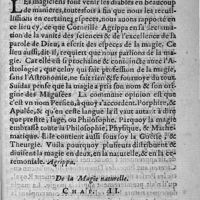 Les magiciens font venir les diables en beaucoup
de manieres, toutesfois a fin que nous les reculissions
en certaines especes, nous auons rapporté en
ce lieu cy, ce que Corneille Agrippa en sa declamation
de la vanité des sciences & de l'excellence de la
parole de Dieu, a escrit des especes de la magie. Ce
lieu aussi, dit-il, requiert que nous parlions de la magie.
Car elle est si prochaine & conioincte auec l'Astrologie,
que celuy qui fait profession de la magie,
sans l'Astronomie, ne fait rien & se fouruoye du tout.
Suidas pense que la magie a pris son nom & son origine
des Magusees. La commune opinion est que
ce nom est Persien, à quoy s'accordent Porphire, &
Apulee, & qu'en ceste langue là il vaut autant à dire
que prestre, sage, ou Philosophe. Parquoy la magie
embrasse toute la Philosophie, Physique, & Mathematique.
Elle contient aussi sous soy la Goëtie &
Theurgie. Voila pourquoy plusieurs distribuent &
diuisent la magie en deux, en la naturelle, & en la ceremoniale.
Agrippa.
De la Magie naturelle.
CHAP. II.